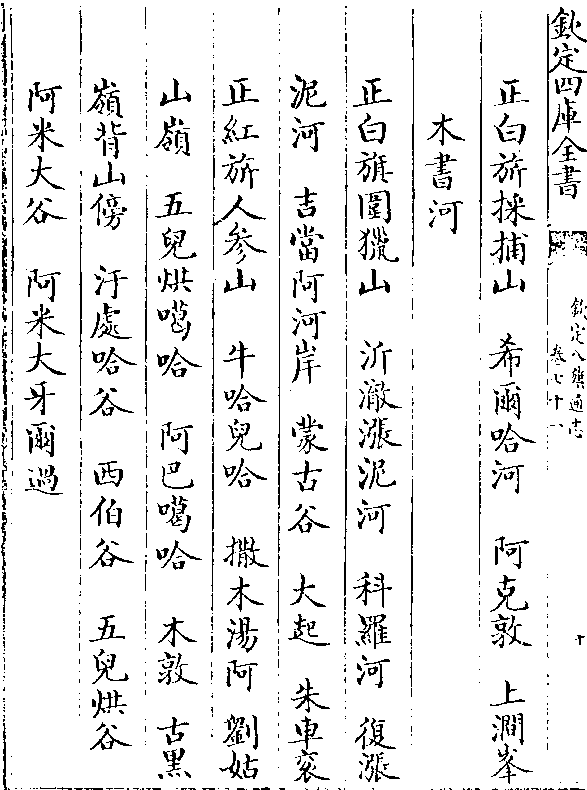 欽定四庫全書
欽定八旗通志
卷七十一
十
正白旂採捕山　希爾哈河　阿克敦　上澗峯
木書河
正白旗圍獵山　沂澈漲泥河　科羅河　復漲
泥河　吉當阿河岸　蒙古谷　大起　朱車衮
正紅旂人參山　牛哈兒哈　撒木湯阿　劉姑
山嶺　五兒烘噶哈　阿巴噶哈　木敦　古黑
嶺背山傍　汙處哈谷　西伯谷　五兒烘谷
阿米大谷　阿米大牙爾過